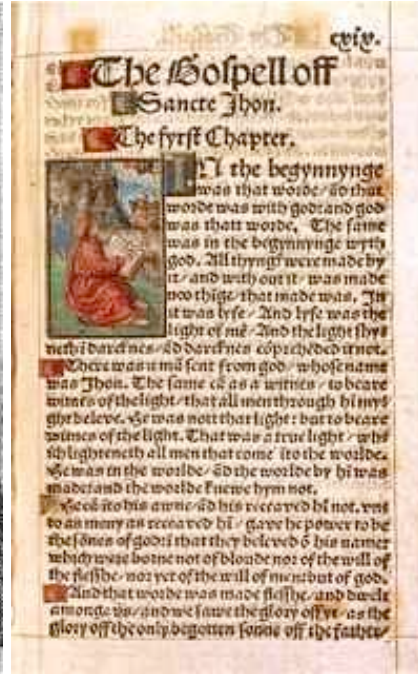 cxix.
The Gospell off
Sancte Jhon.
The fyrst Chapter.
IN the begynnynge
was that worde/ ād that
worde was with god: and god
was thatt worde. The same
was in the begynnynge wyth
god. All thyngs were made by
it/ and with out it/ was made
noo thige/ that made was. In
it was lyfe/ And lyfe was the
light of mē/ And the light shys
neth ī darcknes/ ād darcknes cōprehēded it not.
There was a mā sent from god/ whose name
was Jhon. The same cā as a witnes/ to beare
witnes of the light/ that all men through hī mys
ght beleve. He was nott that light: but to beare
witnes of the light. That was a true light/ whi
ch lighteneth all men that come īto the worlde.
He was in the worlde/ ād the worlde by hī was
made: and the worlde knewe hym not.
He cā īto his awne/ ād his receaved hī not. vnt
to as meny as receaved hī/ gave he power to be
the sōnes of god: ī that they beleved ō his name:
which were borne not of bloude nor of the will of
the flesshe/ nor yet of the will of men: but of god.
And that worde was made flesshe/ and dwelt
amonge vs/ and we sawe the glory off yt/ as the
glory off the only begotten sonne off the father/